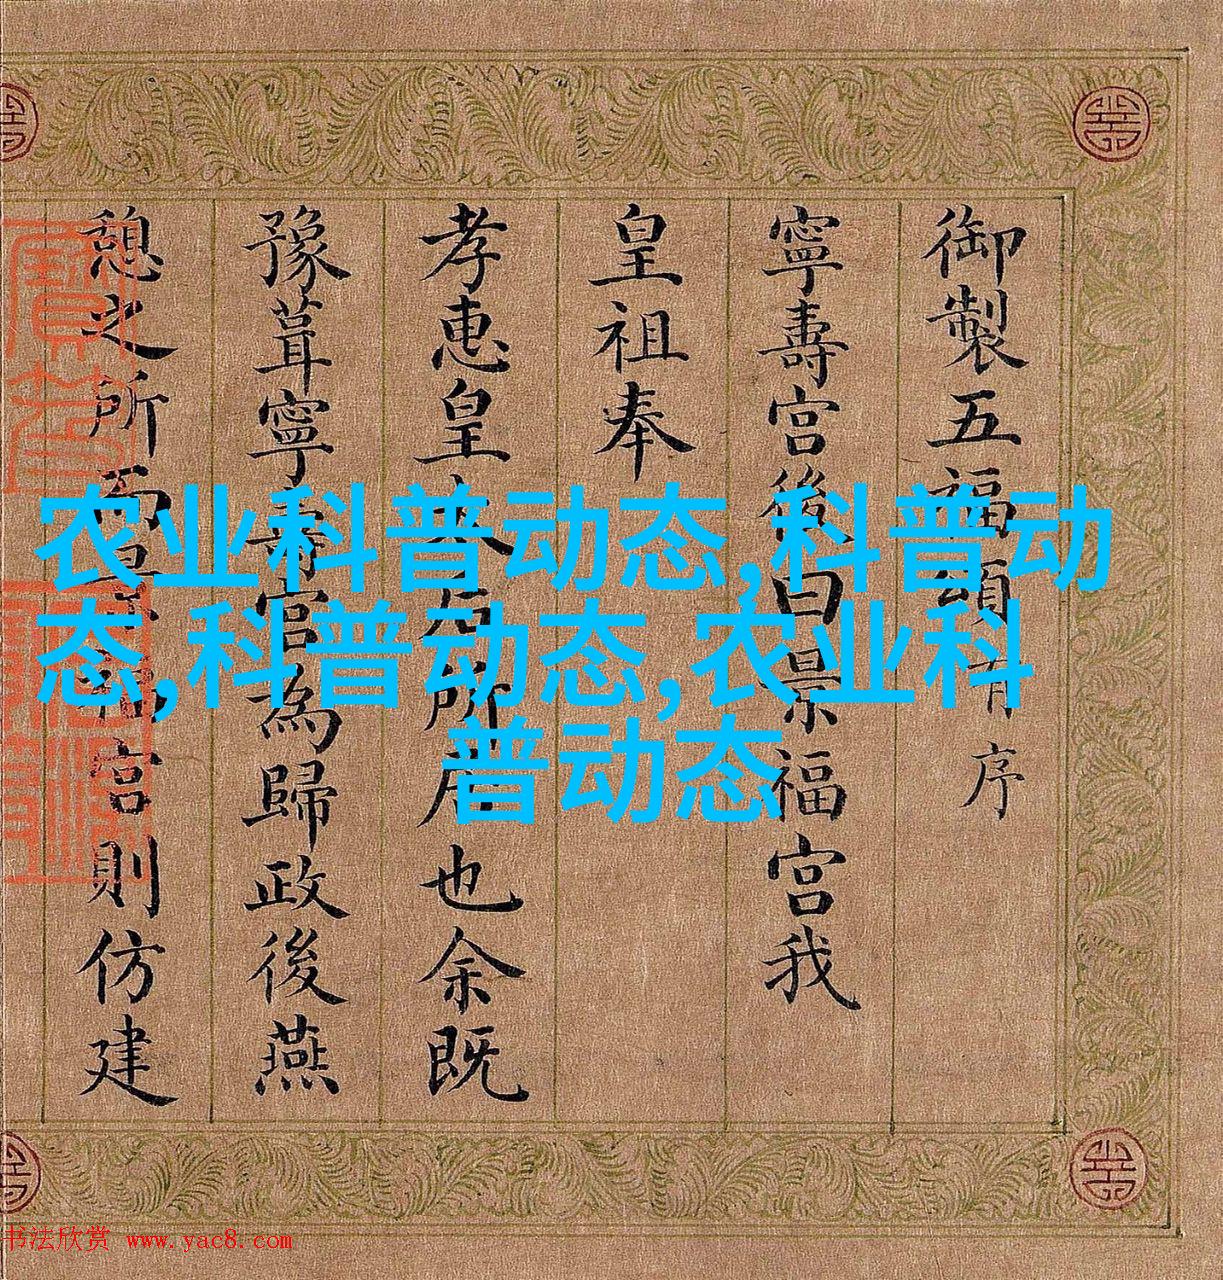 御製五福頌有序
寧壽宫後曰景福宫我
皇祖奉
孝惠皇太后所居也余既
豫葺寧壽宫為歸政後燕
憩之所而景福宫則仿建
农业科普动态,科普动
态,科普动态,农业科
普动态
书法欣赏 www.yac8.com